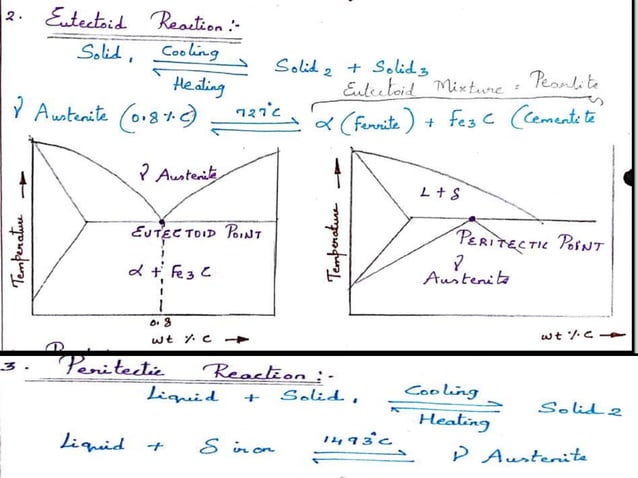 2. Eutectoid Reaction :-
Solid 1 Cooling Solid 2 + Solid 3
Heating Eutectoid Mixture = Pearlite
γ Austenite (0.8 % C) 727°C α (Ferrite) + Fe3C (Cementite
γ Austenite
EUTECTOID POINT
α + Fe3C
Temperature
0.8
wt % C
L + δ
PERITECTIC POINT
γ
Austenite
Temperature
wt % C
3. Peritectic Reaction :-
Liquid + Solid 1 Cooling Solid 2
Heating
Liquid + δ iron 1493°C γ Austenite